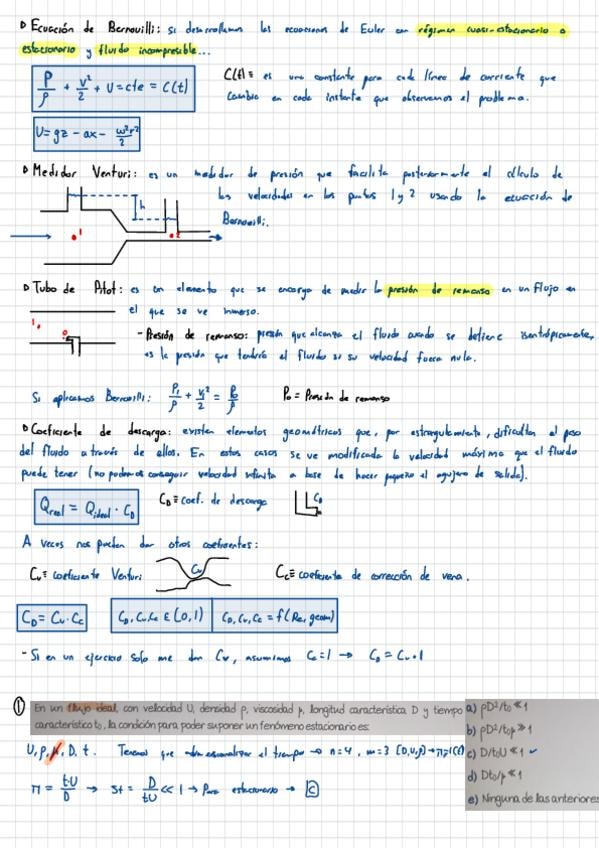 ▷ Ecuación de Bernouilli: si desarrollamos las ecuaciones de Euler con régimen cuasi-estacionario o
estacionario y fluido incompresible...
P/ρ + v²/2 + U = cte = C(t)
C(t) ≡ es una constante para cada línea de corriente que
cambia en cada instante que observemos el problema.
U = gz - ax - ω²r²/2
▷ Medidor Venturi: es un medidor de presión que facilita posteriormente el cálculo de
las velocidades en los puntos 1 y 2 usando la ecuación de
Bernouilli.
h
1
2
▷ Tubo de Pitot: es un elemento que se encarga de medir la presión de remanso en un flujo en
el que se ve inmerso.
1
0
- Presión de remanso: presión que alcanza el fluido cuando se detiene isentrópicamente,
es la presión que tendría el fluido si su velocidad fuera nula.
Si aplicamos Bernouilli: P₁/ρ + v₁²/2 = P₀/ρ P₀ = Presión de remanso
▷ Coeficiente de descarga: existen elementos geométricos que, por estrangulamiento, dificultan el paso
del fluido a través de ellos. En estos casos se ve modificada la velocidad máxima que el fluido
puede tener (no podemos conseguir velocidad infinita a base de hacer pequeño el agujero de salida).
Qreal = Qideal · C_D
C_D ≡ coef. de descarga
C_D
A veces nos pueden dar otros coeficientes:
Cv ≡ coeficiente Venturi
Cv
Cc ≡ coeficiente de corrección de vena.
C_D = Cv · Cc
C_D, Cv, Cc ∈ (0,1)
C_D, Cv, Cc = f(Re, geom)
- Si en un ejercicio solo me dan Cv, asumimos Cc = 1 → C_D = Cv · 1
① En un flujo ideal, con velocidad U, densidad ρ, viscosidad μ, longitud característica D y tiempo
característico t₀, la condición para poder suponer un fenómeno estacionario es:
a) ρD²/t₀ ≪ 1
b) ρD²/t₀μ ≫ 1
c) D/t₀U ≪ 1 ✓
d) Dt₀/μ ≪ 1
e) Ninguna de las anteriores
U, ρ, μ, D, t. Tenemos que adimensionalizar el tiempo → n=4, m=3
Π = t·U/D → St = D/tU ≪ 1 → Para estacionario → C